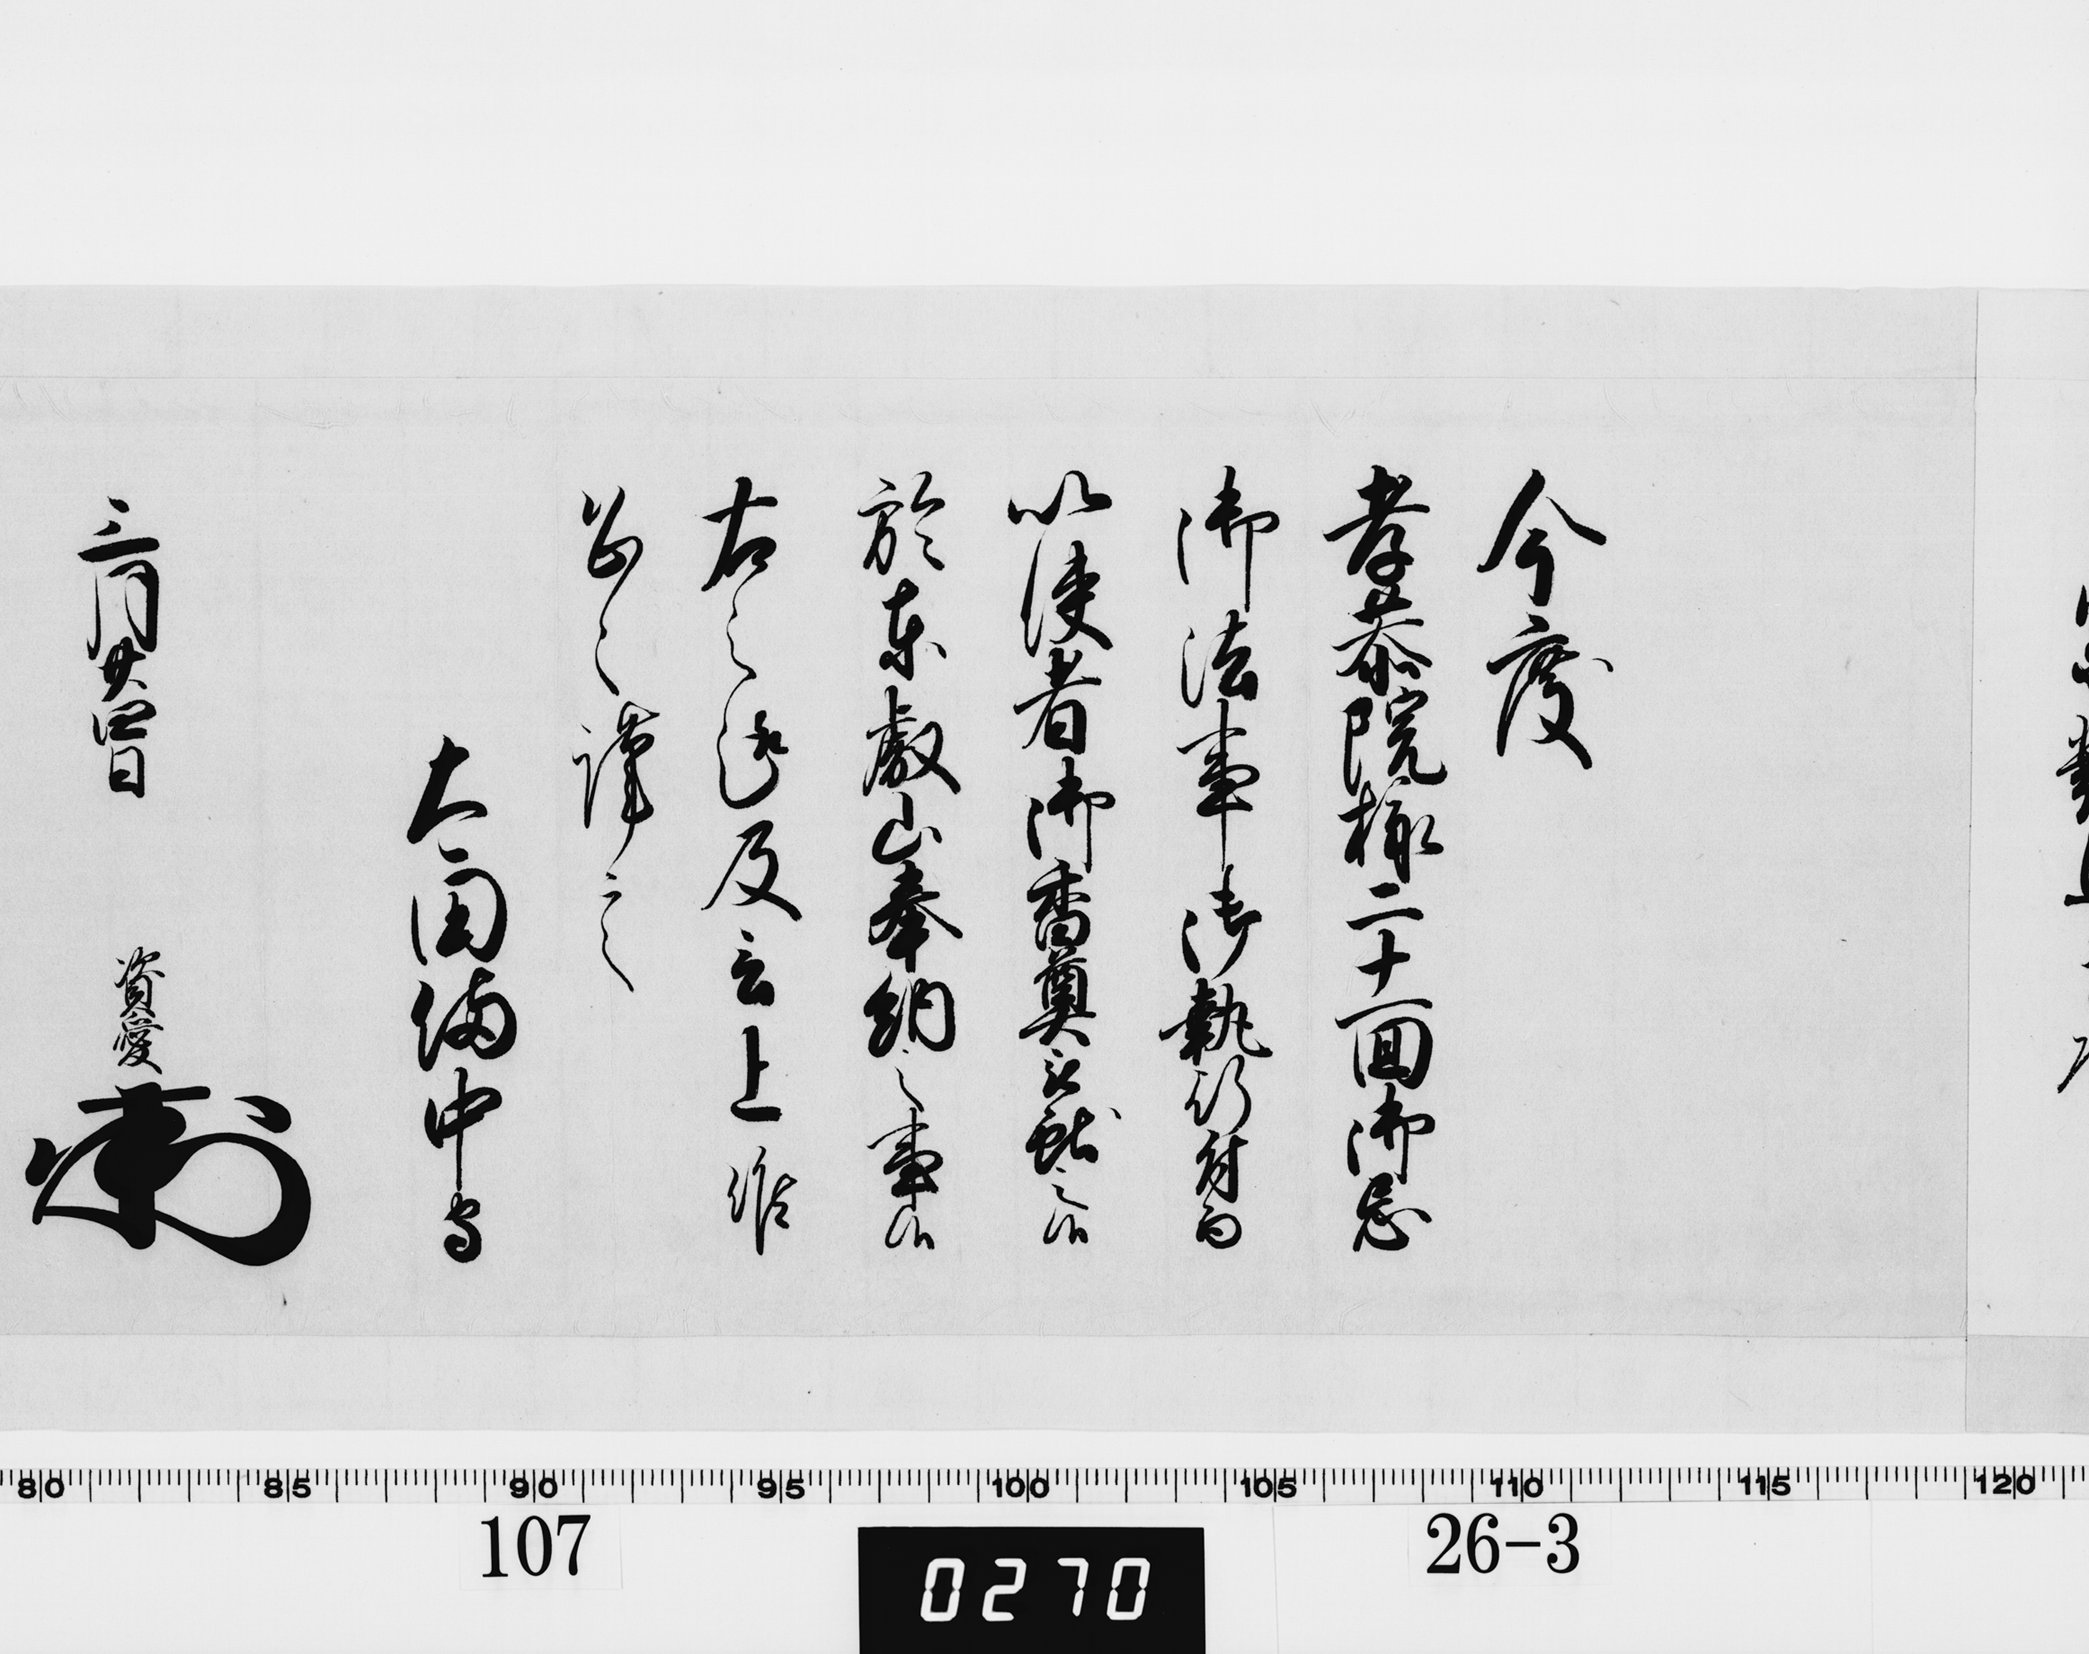 今度
孝恭院様二十一回御忌
御法事御執行付而
以使者御香奠被献之候
於東叡山奉納之事候
右之趣及言上候
恐々謹言
太田備中守
三月廿四日
資愛
80 85 90 95 100 105 110 115 120
107
0270
26-3